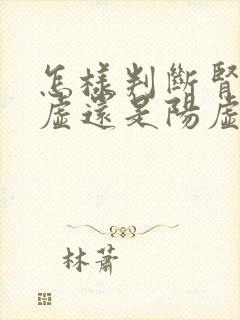 怎樣判斷腎
虛還是陽虛
林蕭